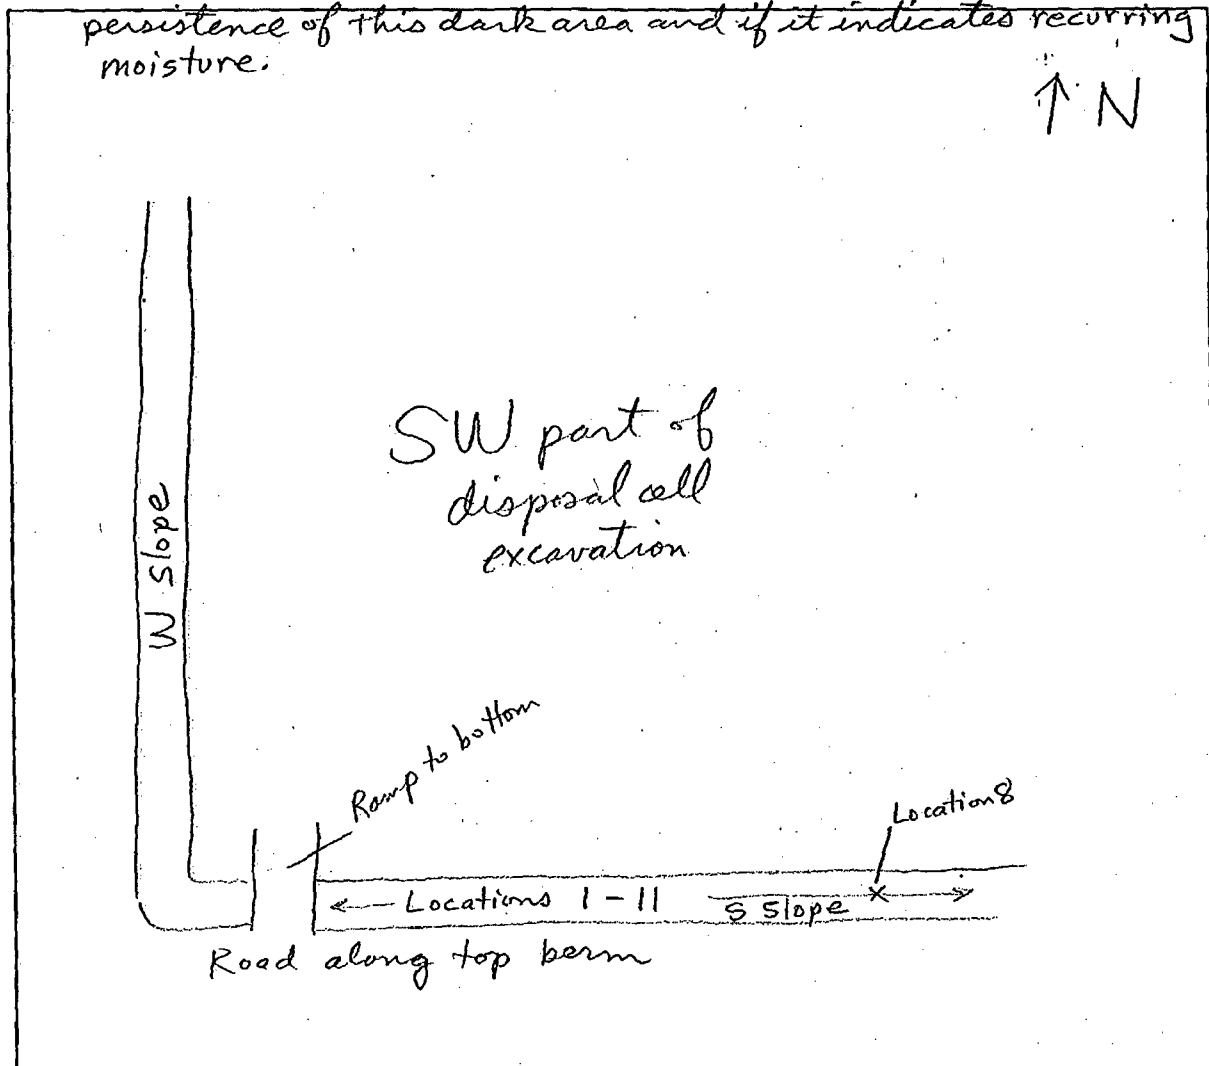 persistence of this dark area and if it indicates recurring
moisture.
↑ N
SW part of
disposal cell
excavation
W Slope
Ramp to bottom
Location 8
← Locations 1 - 11
S Slope
Road along top berm